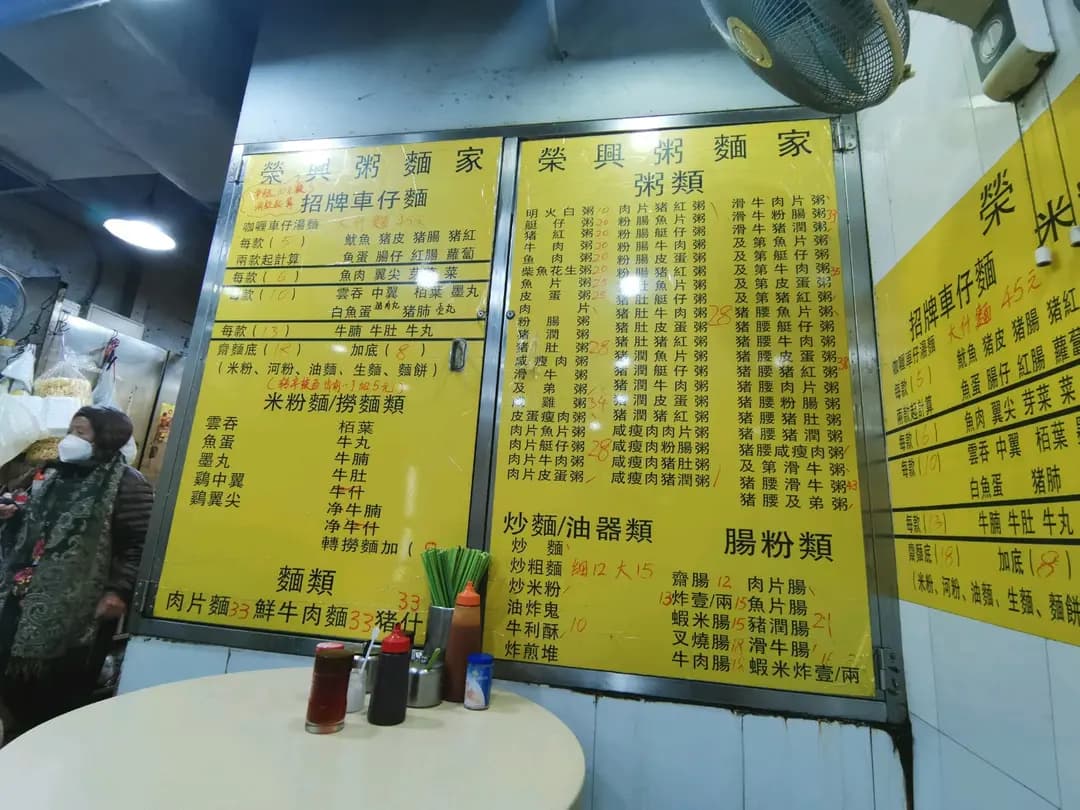 榮興粥麵家
招牌車仔麵
咖喱車仔湯麵 大什麵
每款(5) 魷魚 豬皮 豬腸 豬紅
兩款起計算 魚蛋 腸仔 紅腸 蘿蔔
每款(6) 魚肉 翼尖 芽菜 菜
每款(10) 雲吞 中翼 栢葉 墨丸
白魚蛋 豬肺
每款(13) 牛腩 牛肚 牛丸
齋麵底(18) 加底(8)
(米粉、河粉、油麵、生麵、麵餅)
米粉麵/撈麵類
雲吞 栢葉
魚蛋 牛丸
墨丸 牛腩
鷄中翼 牛肚
鷄翼尖 牛什
净牛腩
净牛什
轉撈麵加(
麵類
肉片麵33 鮮牛肉麵33 豬什 33
榮興粥麵家
粥類
明火白粥10
艇仔粥20
豬紅粥20
牛肉粥20
柴魚花生粥20
魚片粥25
皮蛋粥25
肉片粥
粉腸粥
豬潤粥
豬肚粥28
咸瘦肉粥
滑牛粥
及弟粥
滑雞粥34
皮蛋瘦肉粥
肉片魚片粥
肉片艇仔粥28
肉片牛肉粥
肉片皮蛋粥
肉片豬紅粥
粉腸魚片粥
粉腸牛肉粥
粉腸皮蛋粥
粉腸豬紅粥
豬肚魚片粥
豬肚艇仔粥
豬肚牛肉粥28
豬肚皮蛋粥
豬肚豬紅粥
豬潤魚片粥
豬潤艇仔粥
豬潤牛肉粥
豬潤皮蛋粥
豬潤豬紅粥
咸瘦肉肉片粥
咸瘦肉粉腸粥
咸瘦肉豬肚粥
咸瘦肉豬潤粥
滑牛肉片粥
滑牛粉腸粥
滑牛豬潤粥
及第魚片粥
及第艇仔粥
及第牛肉粥
及第皮蛋粥
及第豬紅粥
豬腰魚片粥
豬腰艇仔粥
豬腰牛肉粥
豬腰皮蛋粥
豬腰豬紅粥
豬腰肉片粥
豬腰粉腸粥
豬腰豬肚粥
豬腰豬潤粥
豬腰咸瘦肉粥
及第滑牛粥
豬腰滑牛粥43
豬腰及弟粥
炒麵/油器類
炒麵
炒粗麵 細12 大15
炒米粉
油炸鬼
牛利酥 10
炸煎堆
腸粉類
齋腸 12 肉片腸
13 炸壹/兩 15 魚片腸
蝦米腸15 豬潤腸 21
叉燒腸18 滑牛腸
牛肉腸 蝦米炸壹/兩
榮
米
招牌車仔麵
咖喱車仔湯麵 大什麵 45元
每款(5) 魷魚 豬皮 豬腸 豬紅
兩款起計算 魚蛋 腸仔 紅腸 蘿蔔
每款(6) 魚肉 翼尖 芽菜 菜
每款(10) 雲吞 中翼 栢葉
白魚蛋 豬肺
每款(13) 牛腩 牛肚 牛丸
齋麵底(18) 加底(8)
(米粉、河粉、油麵、生麵、麵餅